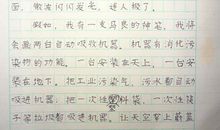 面，微波闪闪发光，迷人极了。
假如，我有一支马良的神笔，我将
会画两台自动吸收机器。机器有消化污
染物的功能。一台安装在天上，一台安
装在地下。把工业污染气，污水都自动
吸进机器；把一次性塑料袋，一次性筷
子等垃圾都吸进机器。让天空穿上蔚蓝